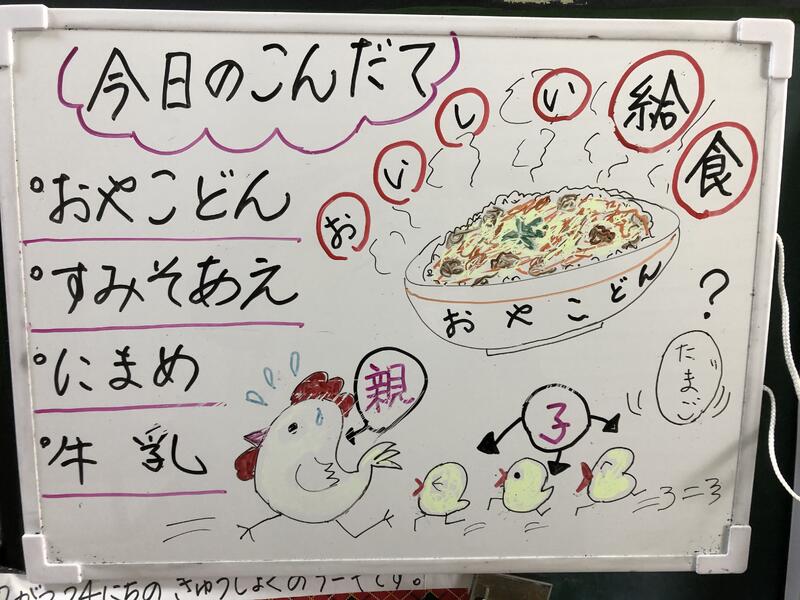 今日のこんだて
おいしい給食
°おやこどん
°すみそあえ
°にまめ
°牛乳
おやこどん
?
たまご
親
子
24にちの きゅうしょくの